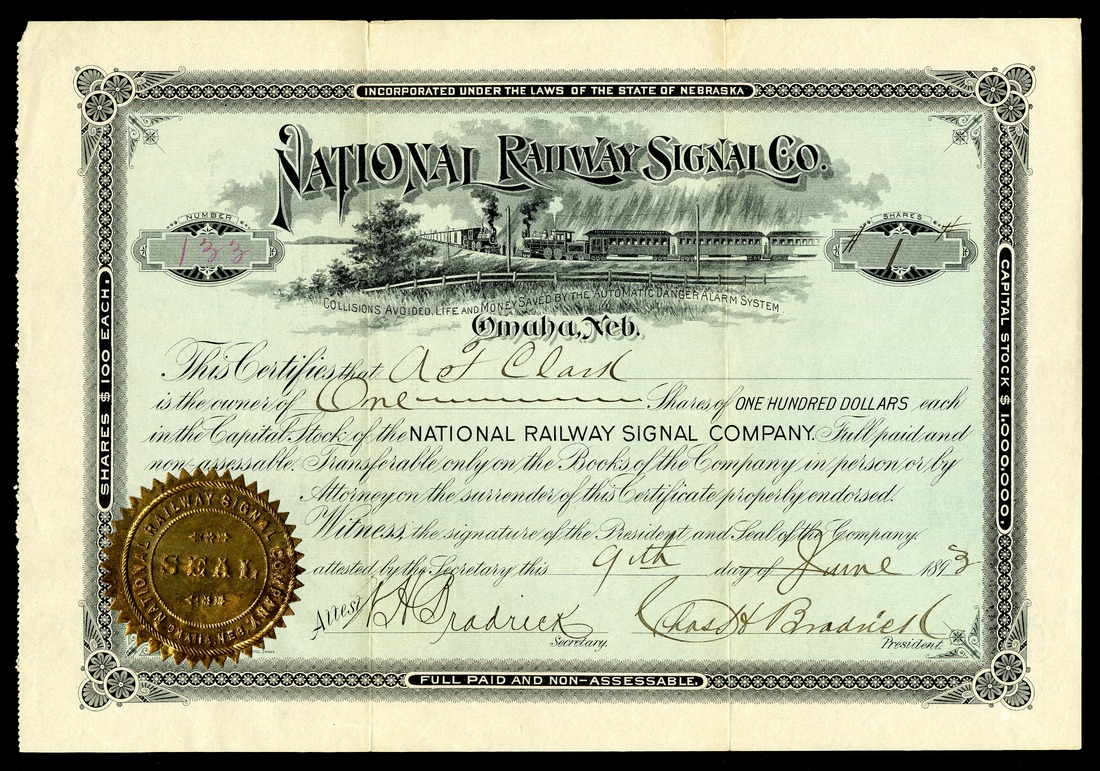 INCORPORATED UNDER THE LAWS OF THE STATE OF NEBRASKA
NATIONAL RAILWAY SIGNAL CO.
NUMBER
133
SHARES
1
COLLISIONS AVOIDED, LIFE AND MONEY SAVED BY THE AUTOMATIC DANGER ALARM SYSTEM
Omaha, Neb.
SHARES $100 EACH.
CAPITAL STOCK $1,000,000.
This Certifies that A O T Clark
is the owner of One Shares of ONE HUNDRED DOLLARS each
in the Capital Stock of the NATIONAL RAILWAY SIGNAL COMPANY. Full paid and
non assessable. Transferable only on the Books of the Company in person or by
Attorney on the surrender of this Certificate properly endorsed.
Witness, the signature of the President and Seal of the Company.
attested by the Secretary this 9th day of June 1893
Attest N H Bradrick Secretary.
Chas H Bradrick President.
NATIONAL RAILWAY SIGNAL COMPANY
SEAL
OMAHA, NEB.
FULL PAID AND NON-ASSESSABLE.